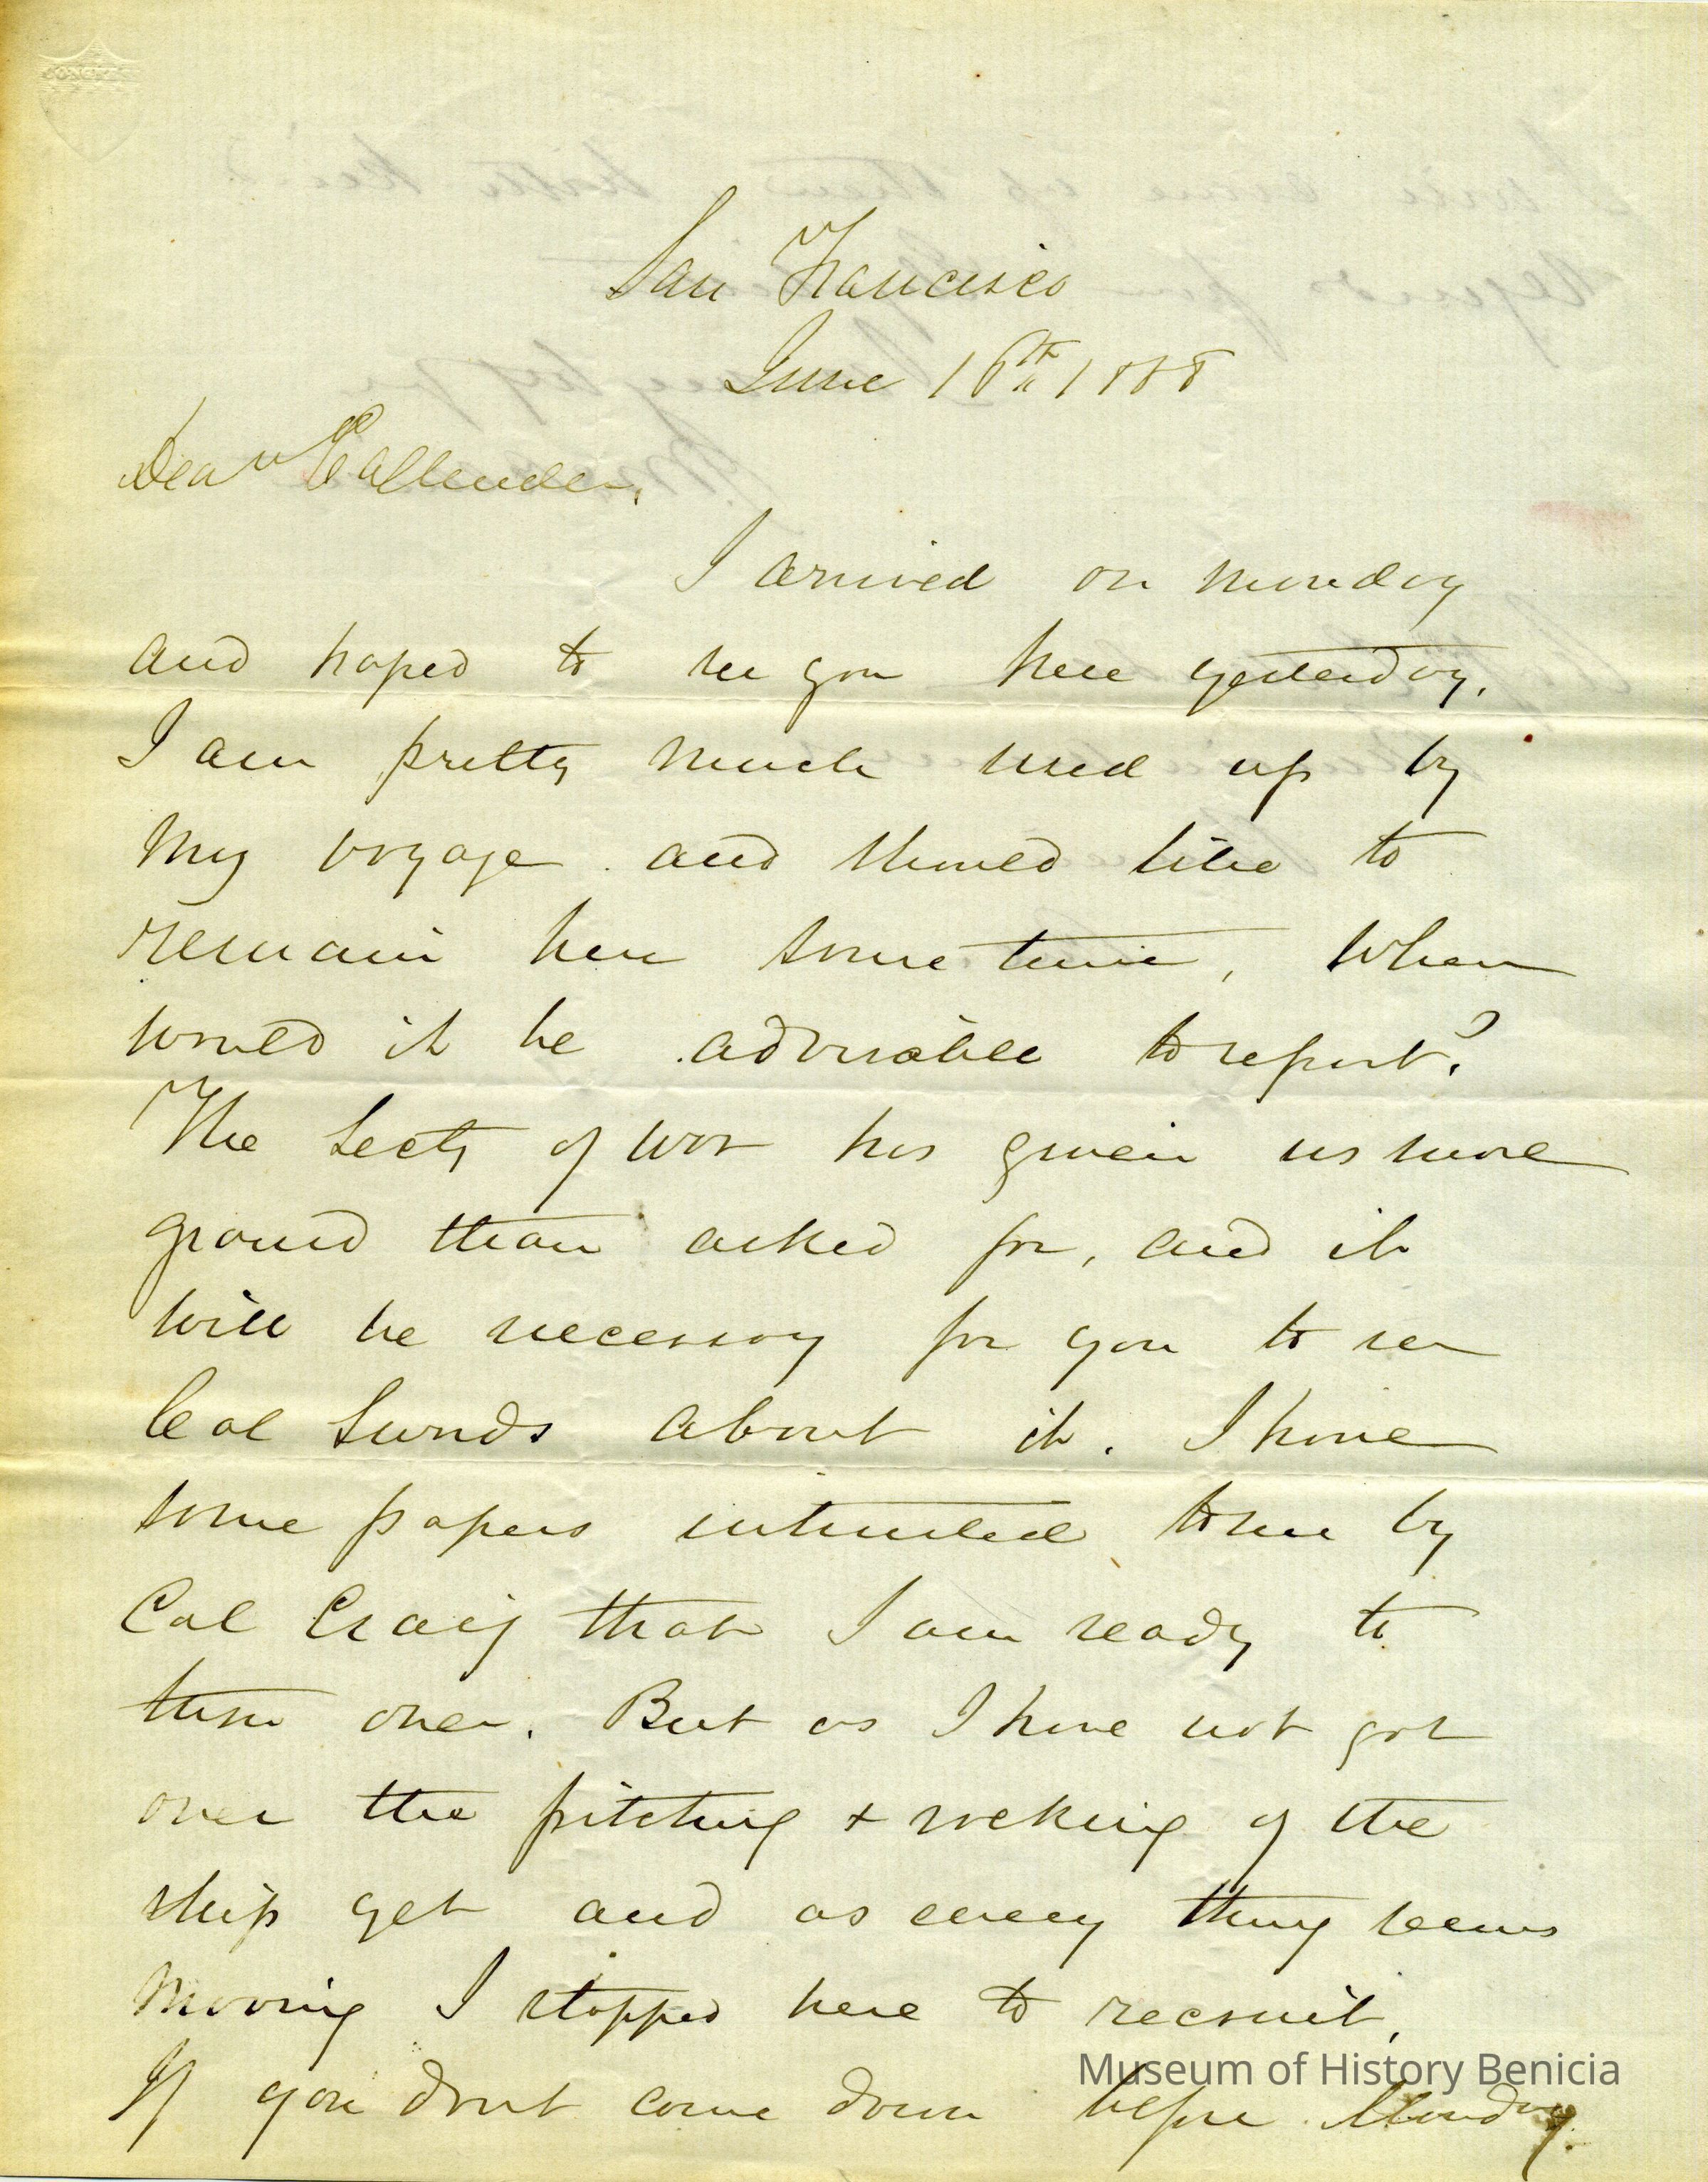 CONGRESS
San Francisco
June 16th 1858
Dear Callender,
I arrived on Monday
and hoped to see you here yesterday.
I am pretty much used up by
my voyage and should like to
remain here some time, When
would it be advisable to report?
The Secty of War has given us more
ground than asked for, and it
will be necessary for you to see
Col Swords about it. I have
some papers intrusted to me by
Col Craig that I am ready to
turn over. But as I have not got
over the pitching + rocking of the
ship yet and as every thing seems
moving I stopped here to recruit.
If you dont come down before Monday.
Museum of History Benicia